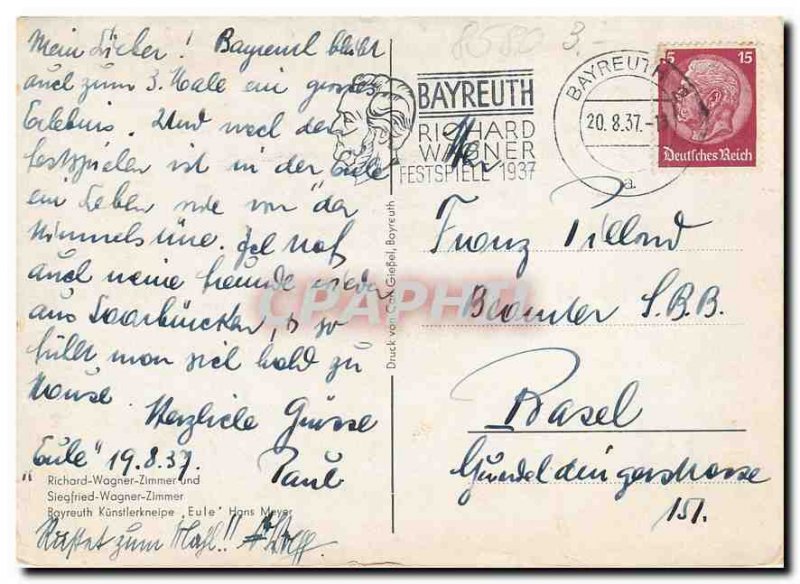 Mein Lieber! Bayreuth bleibt
auch zum 3. Male ein grosses
Erlebnis. Und nach den
Festspielen ist in der Eule
ein Leben wie von der
Himmels
auch meine Freunde wieder
aus Saarbrücken, & so
fühlt man sich bald zu
Hause. Herzliche Grüsse
"Eule" 19.8.37. Paul
Richard-Wagner-Zimmer und
Siegfried-Wagner-Zimmer
Bayreuth Künstlerkneipe „Eule" Hans Meyer
Rüstet zum Mahl!!
Druck von Carl Gießel, Bayreuth
8580 3.-
BAYREUTH
RICHARD
WAGNER
FESTSPIELE 1937
BAYREUTH
20.8.37.
a
15 15
Deutsches Reich
Herrn
Franz Pilloud
Beamter S.B.B.
Basel
Gundeldingerstrasse
151.
CPAPHIL